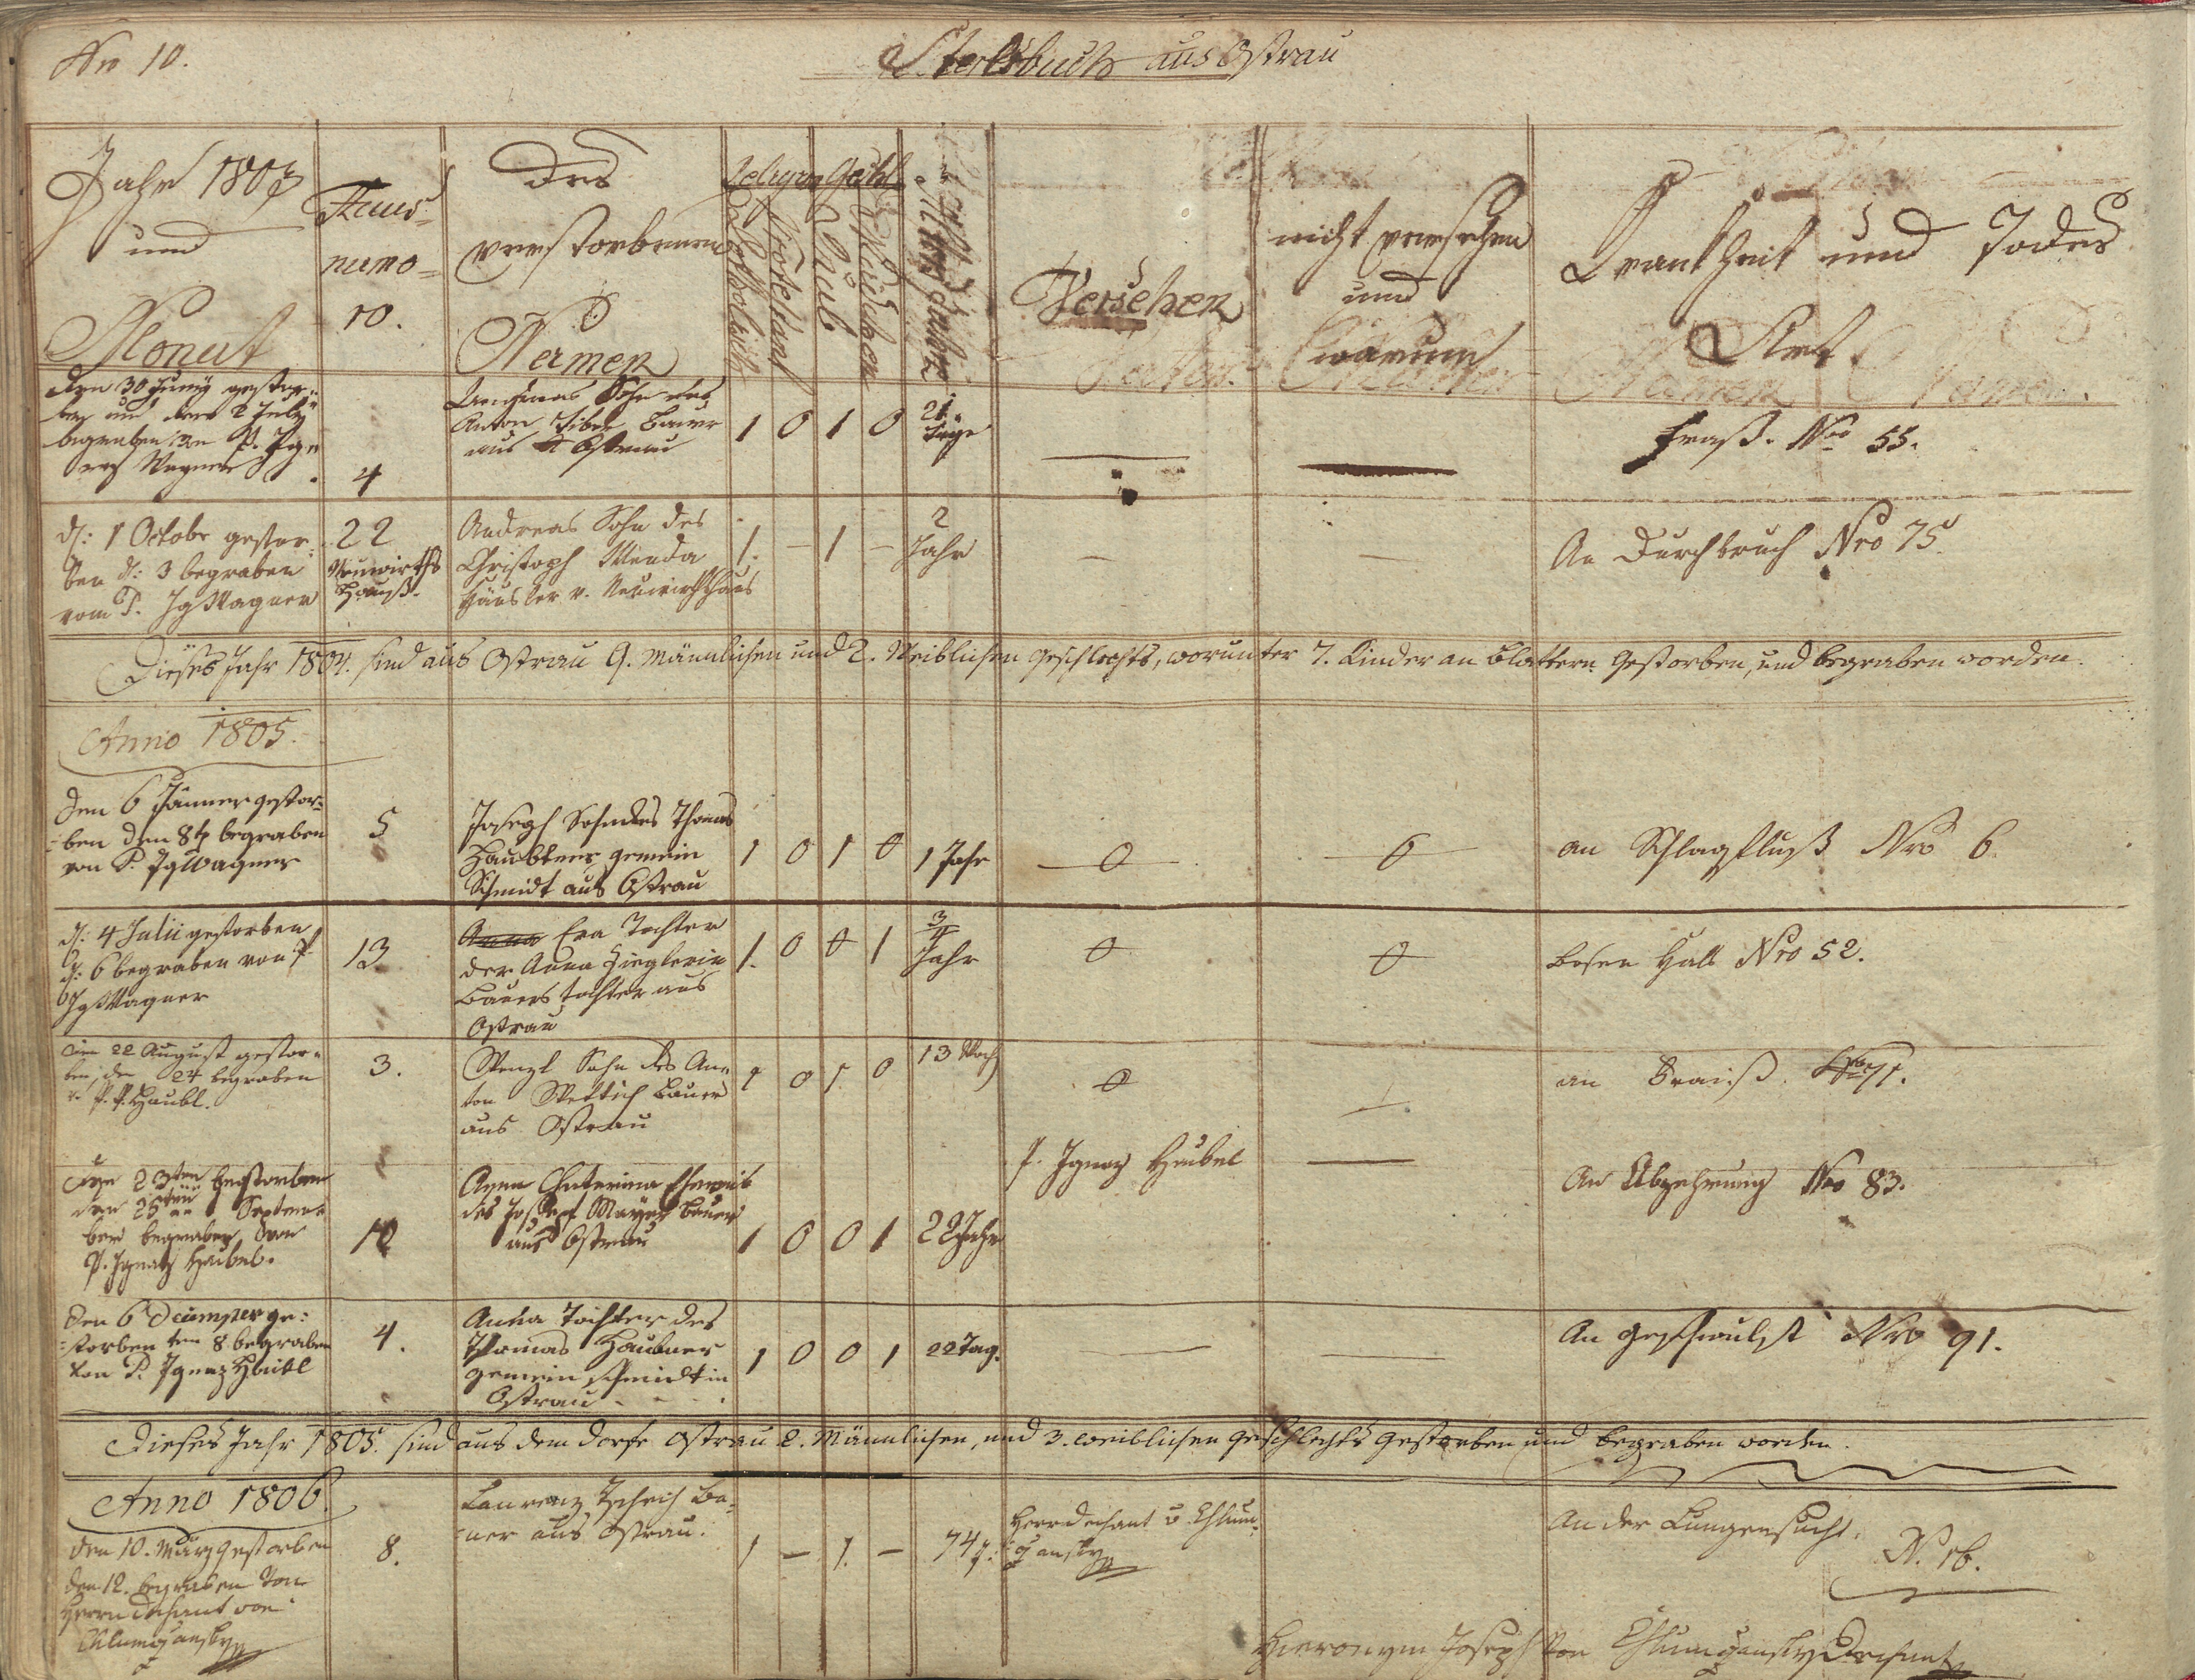 Nro 10.
Sterbsbuch aus Ostrau
Jahr 1803
und
Monat
Haus=
numo=
10.
Des
verstorbenen
Namen
Religion
Katholisch
Protestant
Geschl
Bub
Mädchen
Alter Jahre
Versehen
nicht versehen
und
warum
Krankheit und Todes
Art
den 30 Juny gestor=
ben und den 2 July
begraben von P. Ign
Wagner
4
Sohn des
Anton Bauer
aus Ostrau
1 0 1 0
21
Täge
Fraß. Nro 55.
d: 1 Octobr gestor=
ben d: 3 begraben
vom P. Ig Wagner
22
Neuwirths
Hauß.
Andreas Sohn des
Christoph Wenda
Häusler v. Neuwirthshaus
1. – 1 –
2
Jahr
An Durchbruch Nro 75.
Dieses Jahr 1804. sind aus Ostrau 9. Männlichen und 2. Weiblichen Geschlechts, worunter 7. Kinder an Blattern Gestorben, und begraben worden.
Anno 1805.
den 6 Jänner gestor=
=ben den 8t begraben
von P. Ig Wagner
5
Joseph Sohn des Thomas
Haubtner gemein
Schmidt aus Ostrau
1 0 1 0
1 Jahr
0
0
an Schlagfluß Nro 6.
d: 4 Julii gestorben
d: 6 begraben von P
Ig Wagner
13
Anna Eva Tochter
der Anna Zieglerin
Bauers tochter aus
Ostrau
1. 0 0 1
3/4
Jahr
0
0
bosen Hals Nro 52.
den 22 August gestor=
ben, den 24 begraben
v. P. P. Haubl.
3.
Wenzl Sohn des An=
ton Wettich Bauer
aus Ostrau
1 0 1 0
13 Woch
0
an Fraiß. Nro 71.
den 23ten gestorben
den 25ten Septem=
ber begraben von
P. Ignatz Haibel.
10
Anna Chaterina Eheweib
des Joseph Mayer Bauer
aus Ostrau
1 0 0 1
22 Jahr
P. Ignaz Heubel
An Abzehrung Nro 83.
den 6 Decumper ge=
=storben ten 8 begraben
von P. Ignaz Heibl
4.
Anna Tochter des
Thomas Haubner
gemein schmidt in
Ostrau
1 0 0 1
22 Tag.
An Geschwulst Nro 91.
Dieses Jahr 1805. sind aus dem Dorfe Ostrau 2. Männlichen, und 3. weiblichen Geschlechts Gestorben und begraben worden.
Anno 1806.
den 10. März gestorben
den 12. begraben von
Herrn Dechant von
Chlumczansky
8.
Laurenz Bau=
=uer aus Ostrau.
1 – 1. –
74 J:
Herr Dechant v Chlum=
czansky
An der Lungensucht.
N. 16.
Hieronym Joseph von Chlumczansky Dechant